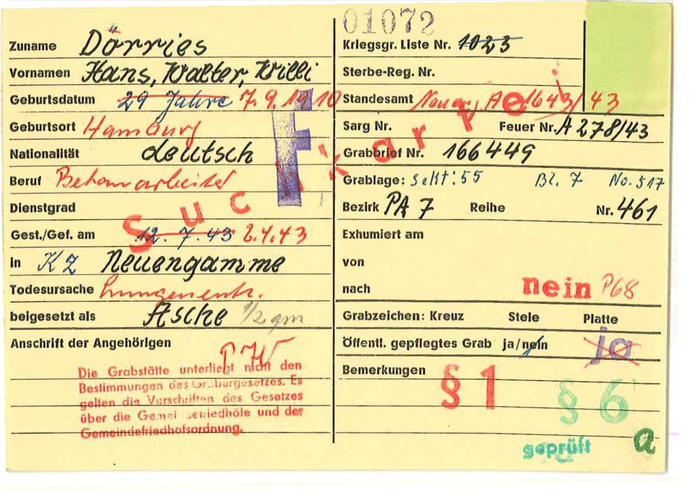 01072
Zuname Dörries
Vornamen Hans, Walter, Willi
Geburtsdatum 29 Jahre 7.9.1910
Geburtsort Hamburg
Nationalität deutsch
Beruf Betonarbeiter
Dienstgrad
Gest./Gef. am 12.7.43 2.4.43
in KZ Neuengamme
Todesursache Lungenentz.
beigesetzt als Asche 1/2 qm
Anschrift der Angehörigen
PW
Die Grabstätte unterliegt nicht den
Bestimmungen des Gräbergesetzes. Es
gelten die Vorschriften des Gesetzes
über die Gemeindefriedhöfe und der
Gemeindefriedhofsordnung.
F
Suchkartei
Kriegsgr. Liste Nr. 1023
Sterbe-Reg. Nr.
Standesamt Neueng. A 1643/43
Sarg Nr. Feuer Nr. A 278/43
Grabbrief Nr. 166449
Grablage: Sekt: 55 Bl. 7 No. 517
Bezirk PA 7 Reihe Nr. 461
Exhumiert am
von
nach nein P68
Grabzeichen: Kreuz Stele Platte
Öffentl. gepflegtes Grab ja/nein ja
Bemerkungen
§ 1
§ 6
geprüft
a